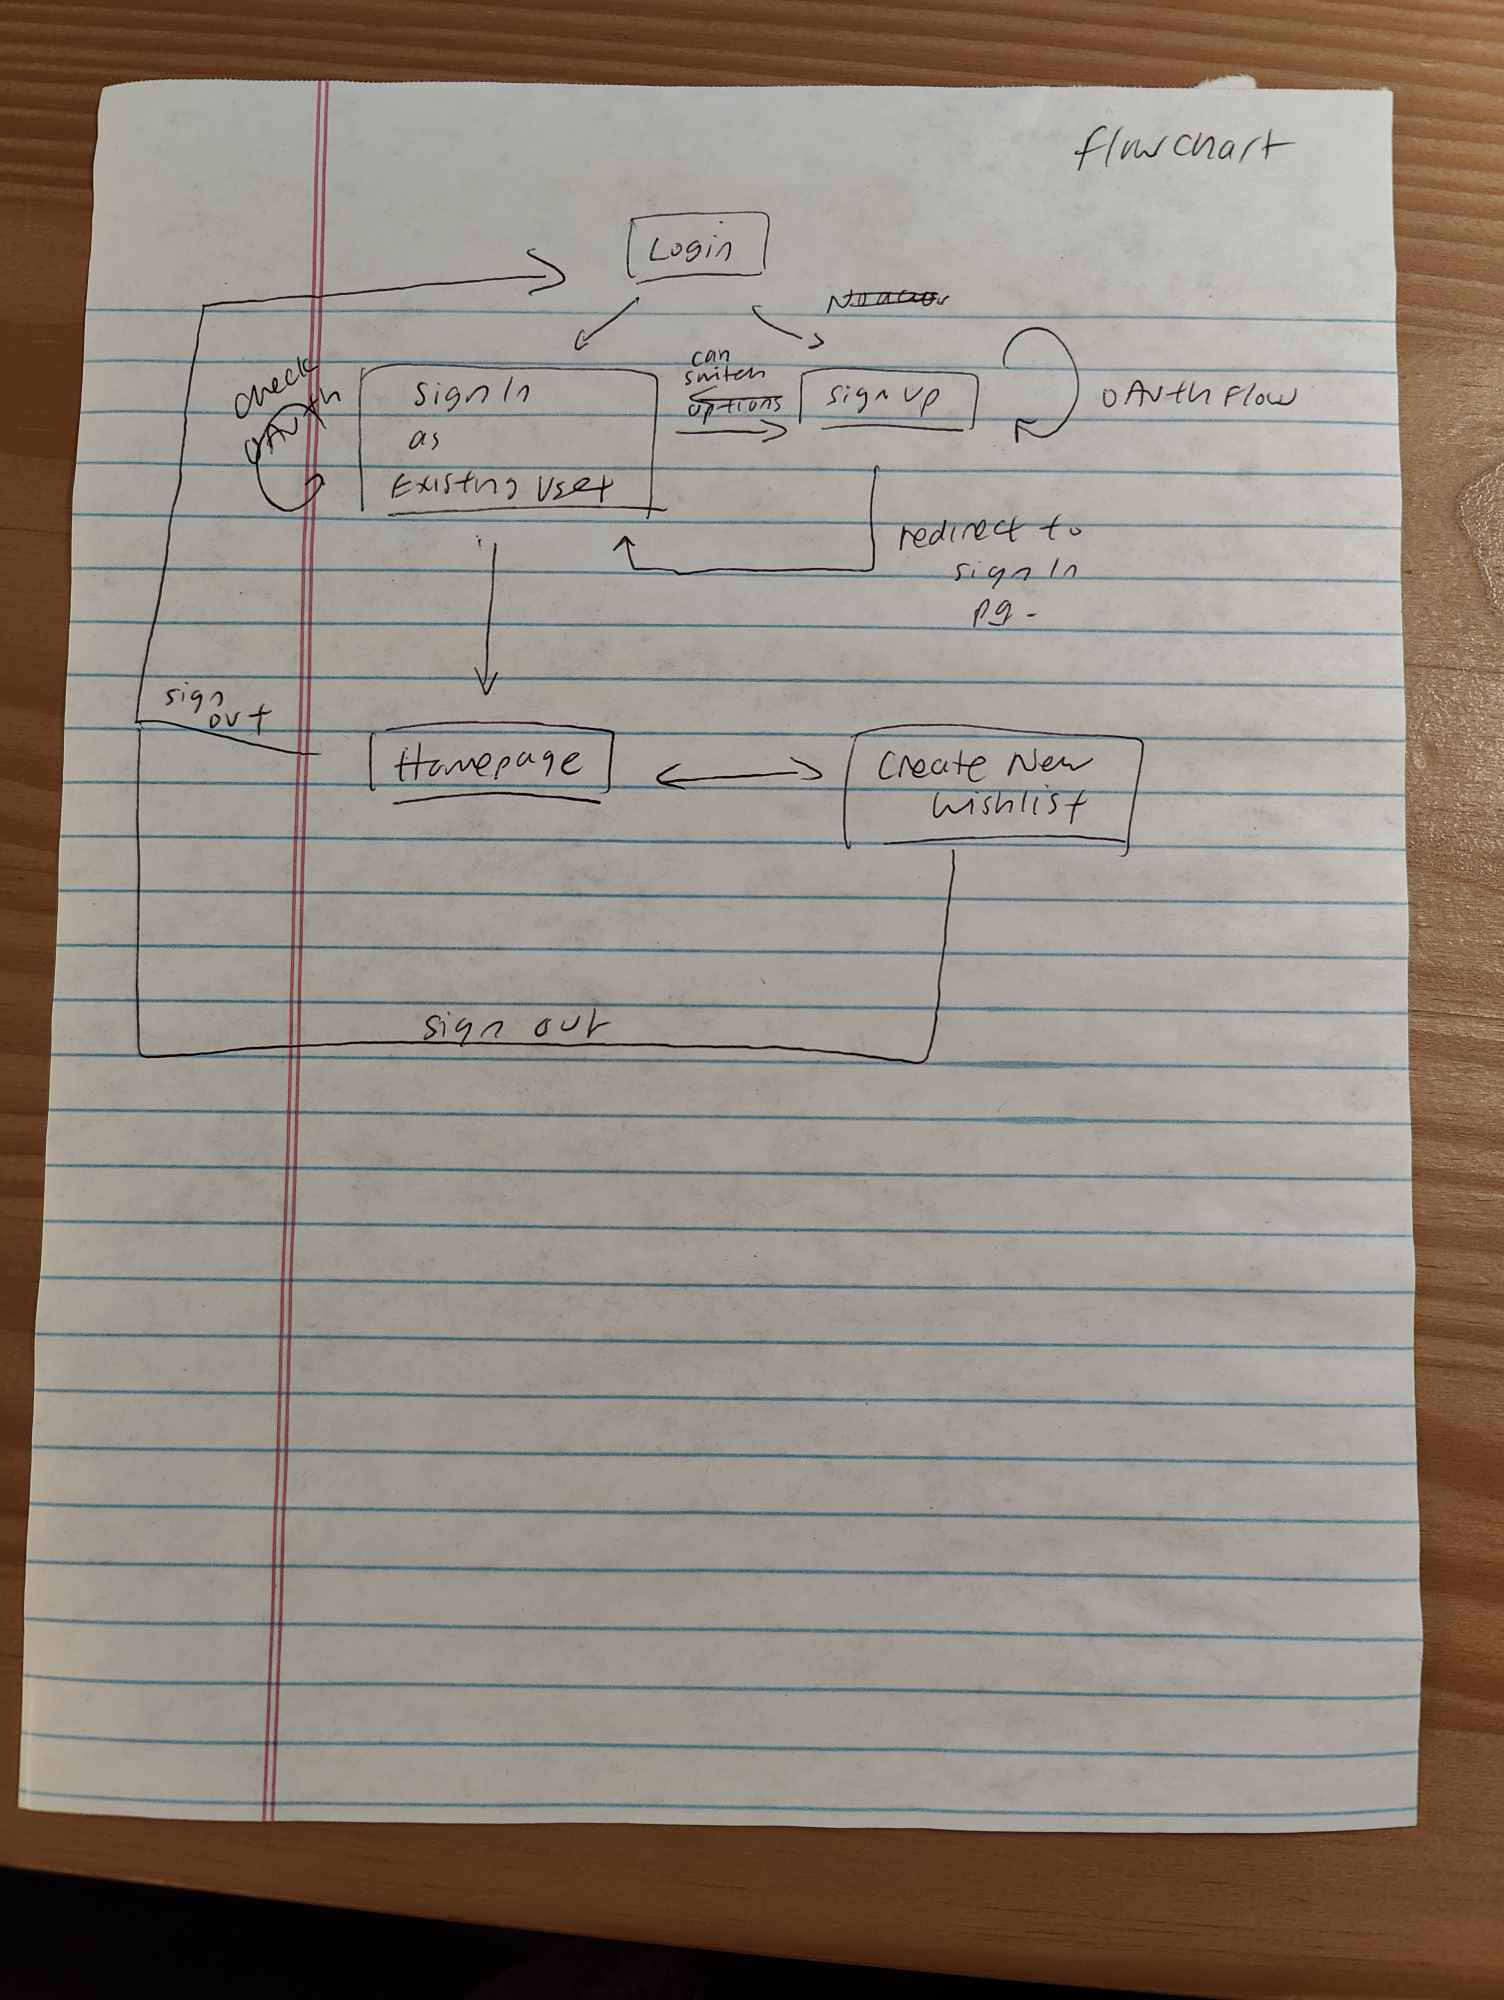 flowchart
Login
check
OAuth
Sign In
as
Existing User
can
switch
options
sign up
OAuth Flow
redirect to
sign In
pg.
sign
out
Homepage
Create New
Wishlist
sign out